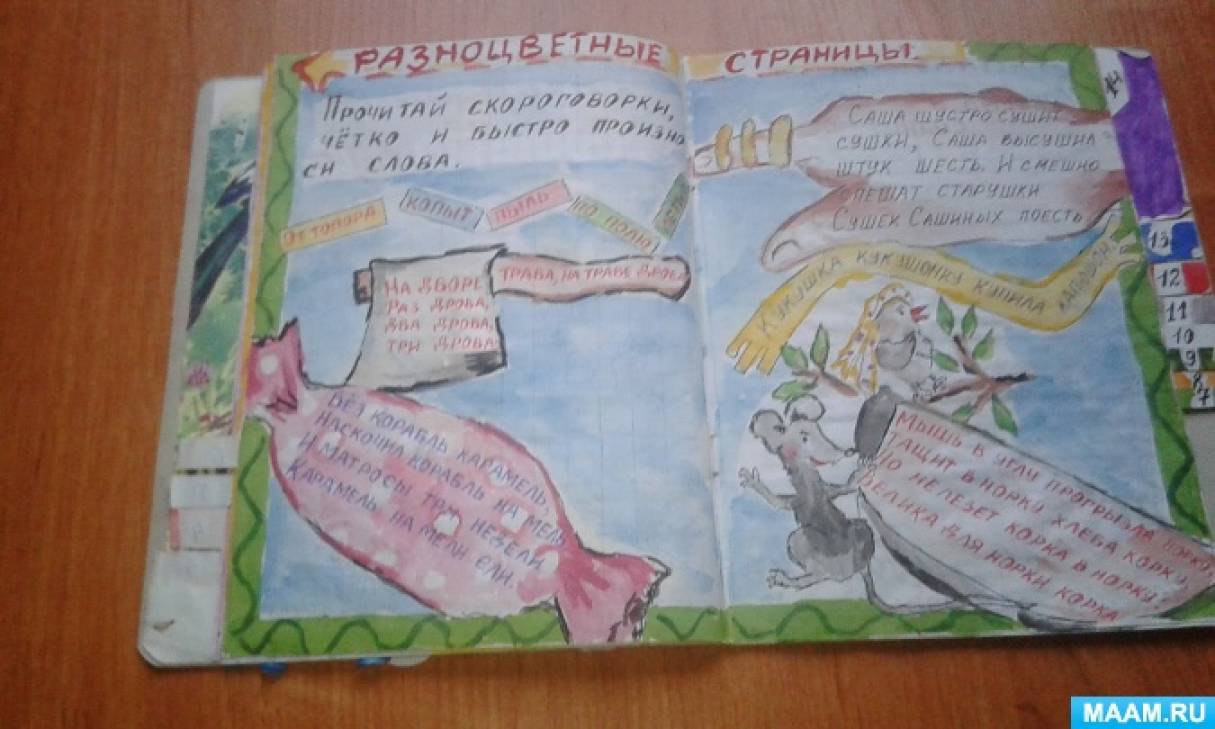 РАЗНОЦВЕТНЫЕ СТРАНИЦЫ.
ПРОЧИТАЙ СКОРОГОВОРКИ,
ЧЁТКО И БЫСТРО ПРОИЗНО
СИ СЛОВА.
ОТ ТОПОТА
КОПЫТ
ПЫЛЬ
ПО ПОЛЮ
НА ДВОРЕ
РАЗ ДРОВА,
ДВА ДРОВА,
ТРИ ДРОВА.
ТРАВА, НА ТРАВЕ ДРОВА
ВЁЗ КОРАБЛЬ КАРАМЕЛЬ,
НАСКОЧИЛ КОРАБЛЬ НА МЕЛЬ
И МАТРОСЫ ТРИ НЕДЕЛИ
КАРАМЕЛЬ НА МЕЛИ ЕЛИ.
САША ШУСТРО СУШИТ
СУШКИ, САША ВЫСУШИЛ
ШТУК ШЕСТЬ. И СМЕШНО
СПЕШАТ СТАРУШКИ
СУШЕК САШИНЫХ ПОЕСТЬ
КУКУШКА КУКУШОНКУ КУПИЛА КАПЮШОН.
МЫШЬ В УГЛУ ПРОГРЫЗЛА НОРКУ,
ТАЩИТ В НОРКУ ХЛЕБА КОРКУ,
НО НЕ ЛЕЗЕТ КОРКА В НОРКУ:
ВЕЛИКА ДЛЯ НОРКИ КОРКА
14
13
12
11
10
9
8
7
MAAM.RU